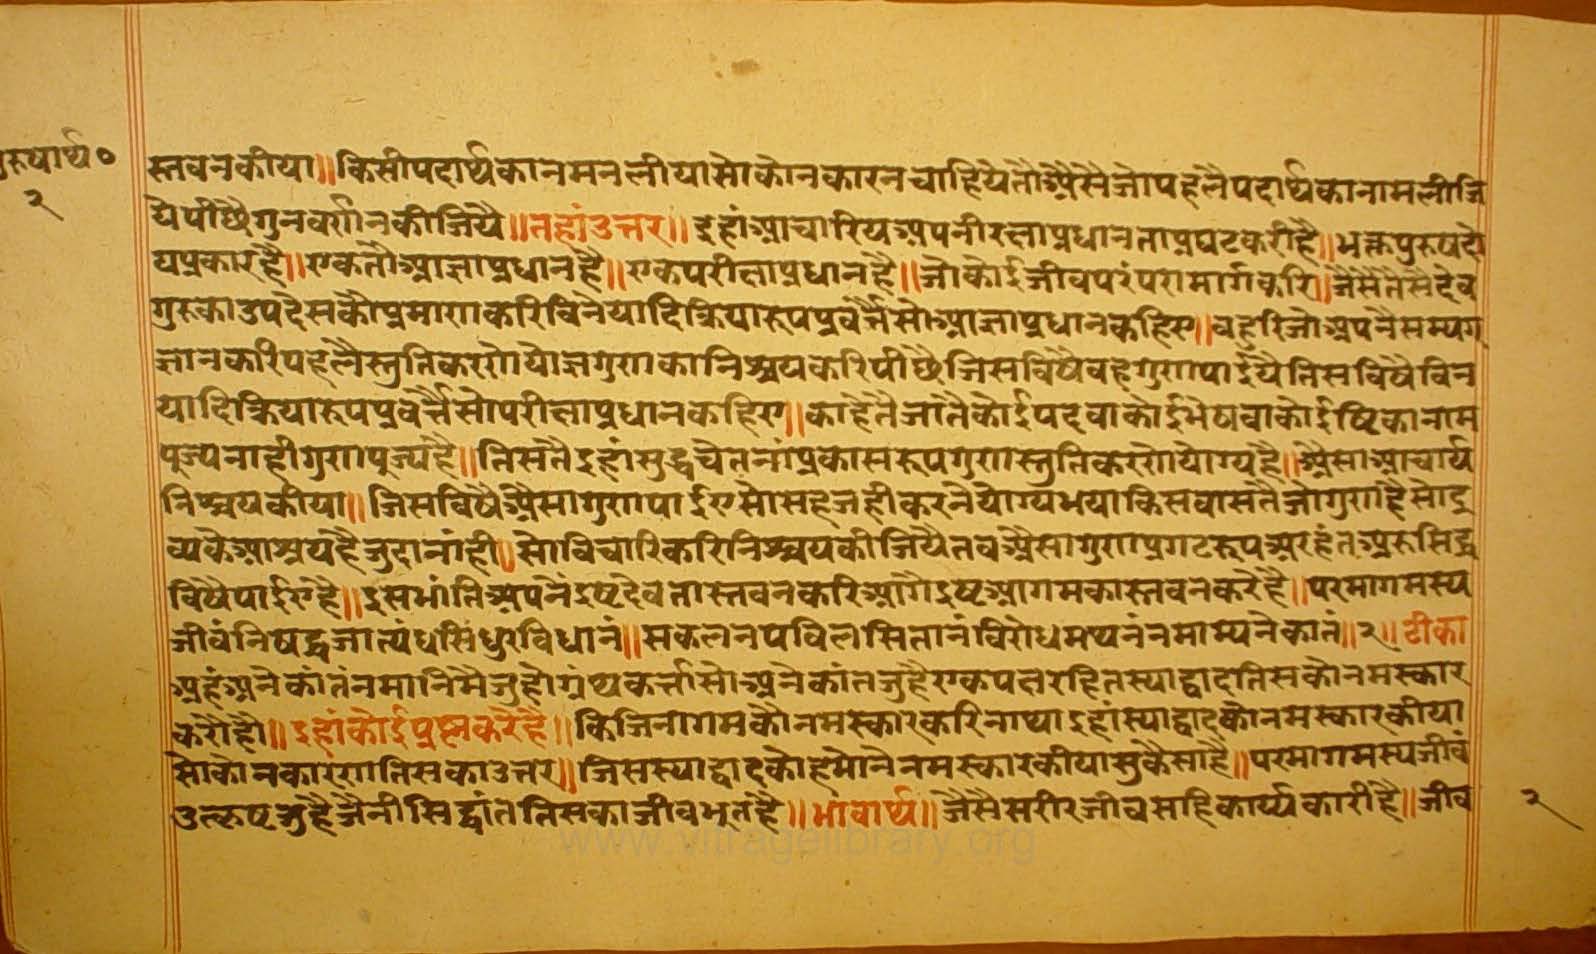 पुरुषार्थ०
२
स्तवनकीया॥किसीपदार्थकानमनलीयासोकोनकारनचाहियेतौअैसैजोपहलैपदार्थकानामलीजि
यैपीछैगुनवर्णनकीजियै॥तहांउत्तर॥इहांआचारियअपनीरक्षाप्रधानताप्रघटकरीहै॥भक्तपुरुषदो
यप्रकारहै॥एकतौआज्ञाप्रधानहै॥एकपरीक्षाप्रधानहै॥जोकोईजीवपरंपरामार्गकरि॥जैसेतैसैदेव
गुरुकाउपदेसकौप्रमाणकरिविनैयादिक्रियारूपप्रवर्त्तैसोआज्ञाप्रधानकहिए॥बहुरिजोअपनैसम्यग्
ज्ञानकरिपहलैस्तुतिकरणेयोज्ञगुणकानिश्चयकरिपीछैजिसविषैवहगुणपाईयैतिसविषैविन
यादिक्रियारूपप्रवर्त्तैसोपरीक्षाप्रधानकहिए॥काहेतैजातैकोईपदवाकोईभेषवाकोईष्टिकानाम
पूज्यनाहीगुणपूज्यहै॥तिसतैइहांसुद्धचेतनांप्रकासरूपगुणस्तुतिकरणेयोग्यहै॥अैसाआचार्य
निश्चयकीया॥जिसविषैअैसागुणपाईएसोसहजहीकरनैयोग्यभयाकिसवासतैजोगुणहैसोद्र
व्यकैआश्रयहैजुदानांही॥सोविचारिकरिनिश्चयकीजियैतवअैसागुणप्रगटरूपअरहंतअरुसिद्ध
विषैपाईएहै॥इसभांतिअपनेंइष्टदेवतास्तवनकरिआगैइष्टआगमकास्तवनकरैहै॥परमागमस्य
जीवंनिषद्धजात्यंधसिंधुरविधानं॥सकलनपविलसितानंविरोधमथनंनमाम्यनेकांतं॥२॥टीका
अहंअनेकांतंनमानिमैजुहोग्रंथकर्त्तासोअनेकांतजुहैएकपक्षरहितस्याद्वादतिसकौनमस्कार
करौहौ॥इहांकोईप्रश्नकरैहै॥किजिनागमकौनमस्कारकरिनाथाइहांस्याद्वादकौनमस्कारकीया
सोकोनकारणतिसकाउत्तर॥जिसस्याद्वादकौहमोंनैनमस्कारकीयासुकैसाहै॥परमागमस्यजीवं
उत्कृष्टजुहैजैनीसिद्धांततिसकाजीवभूतहै॥भावार्थ॥जैसैसरीरजीवसहिकार्यकारीहै॥जीव
२
www.vitragelibrary.org